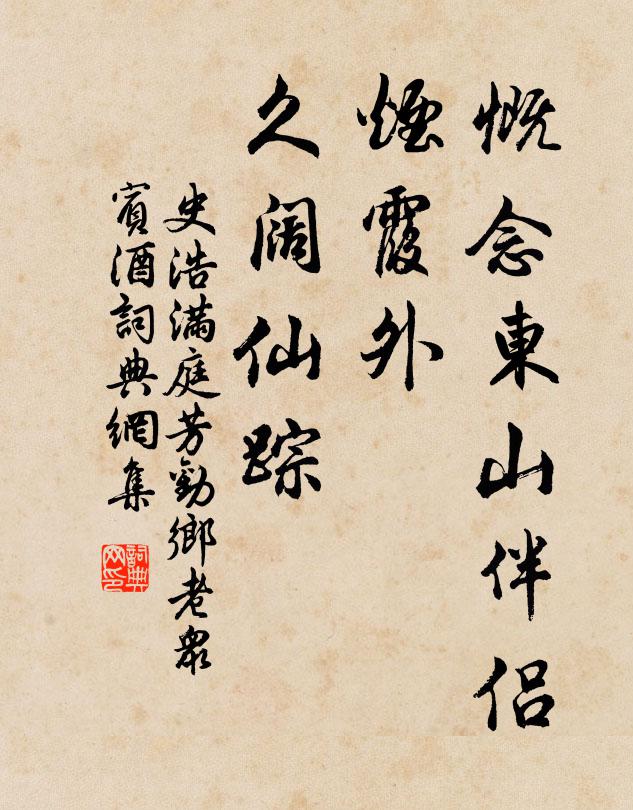 慨念東山伴侶
煙霞外
久阔仙踪
史浩滿庭芳勸鄉老衆
賓酒詞典網集
詞典网印